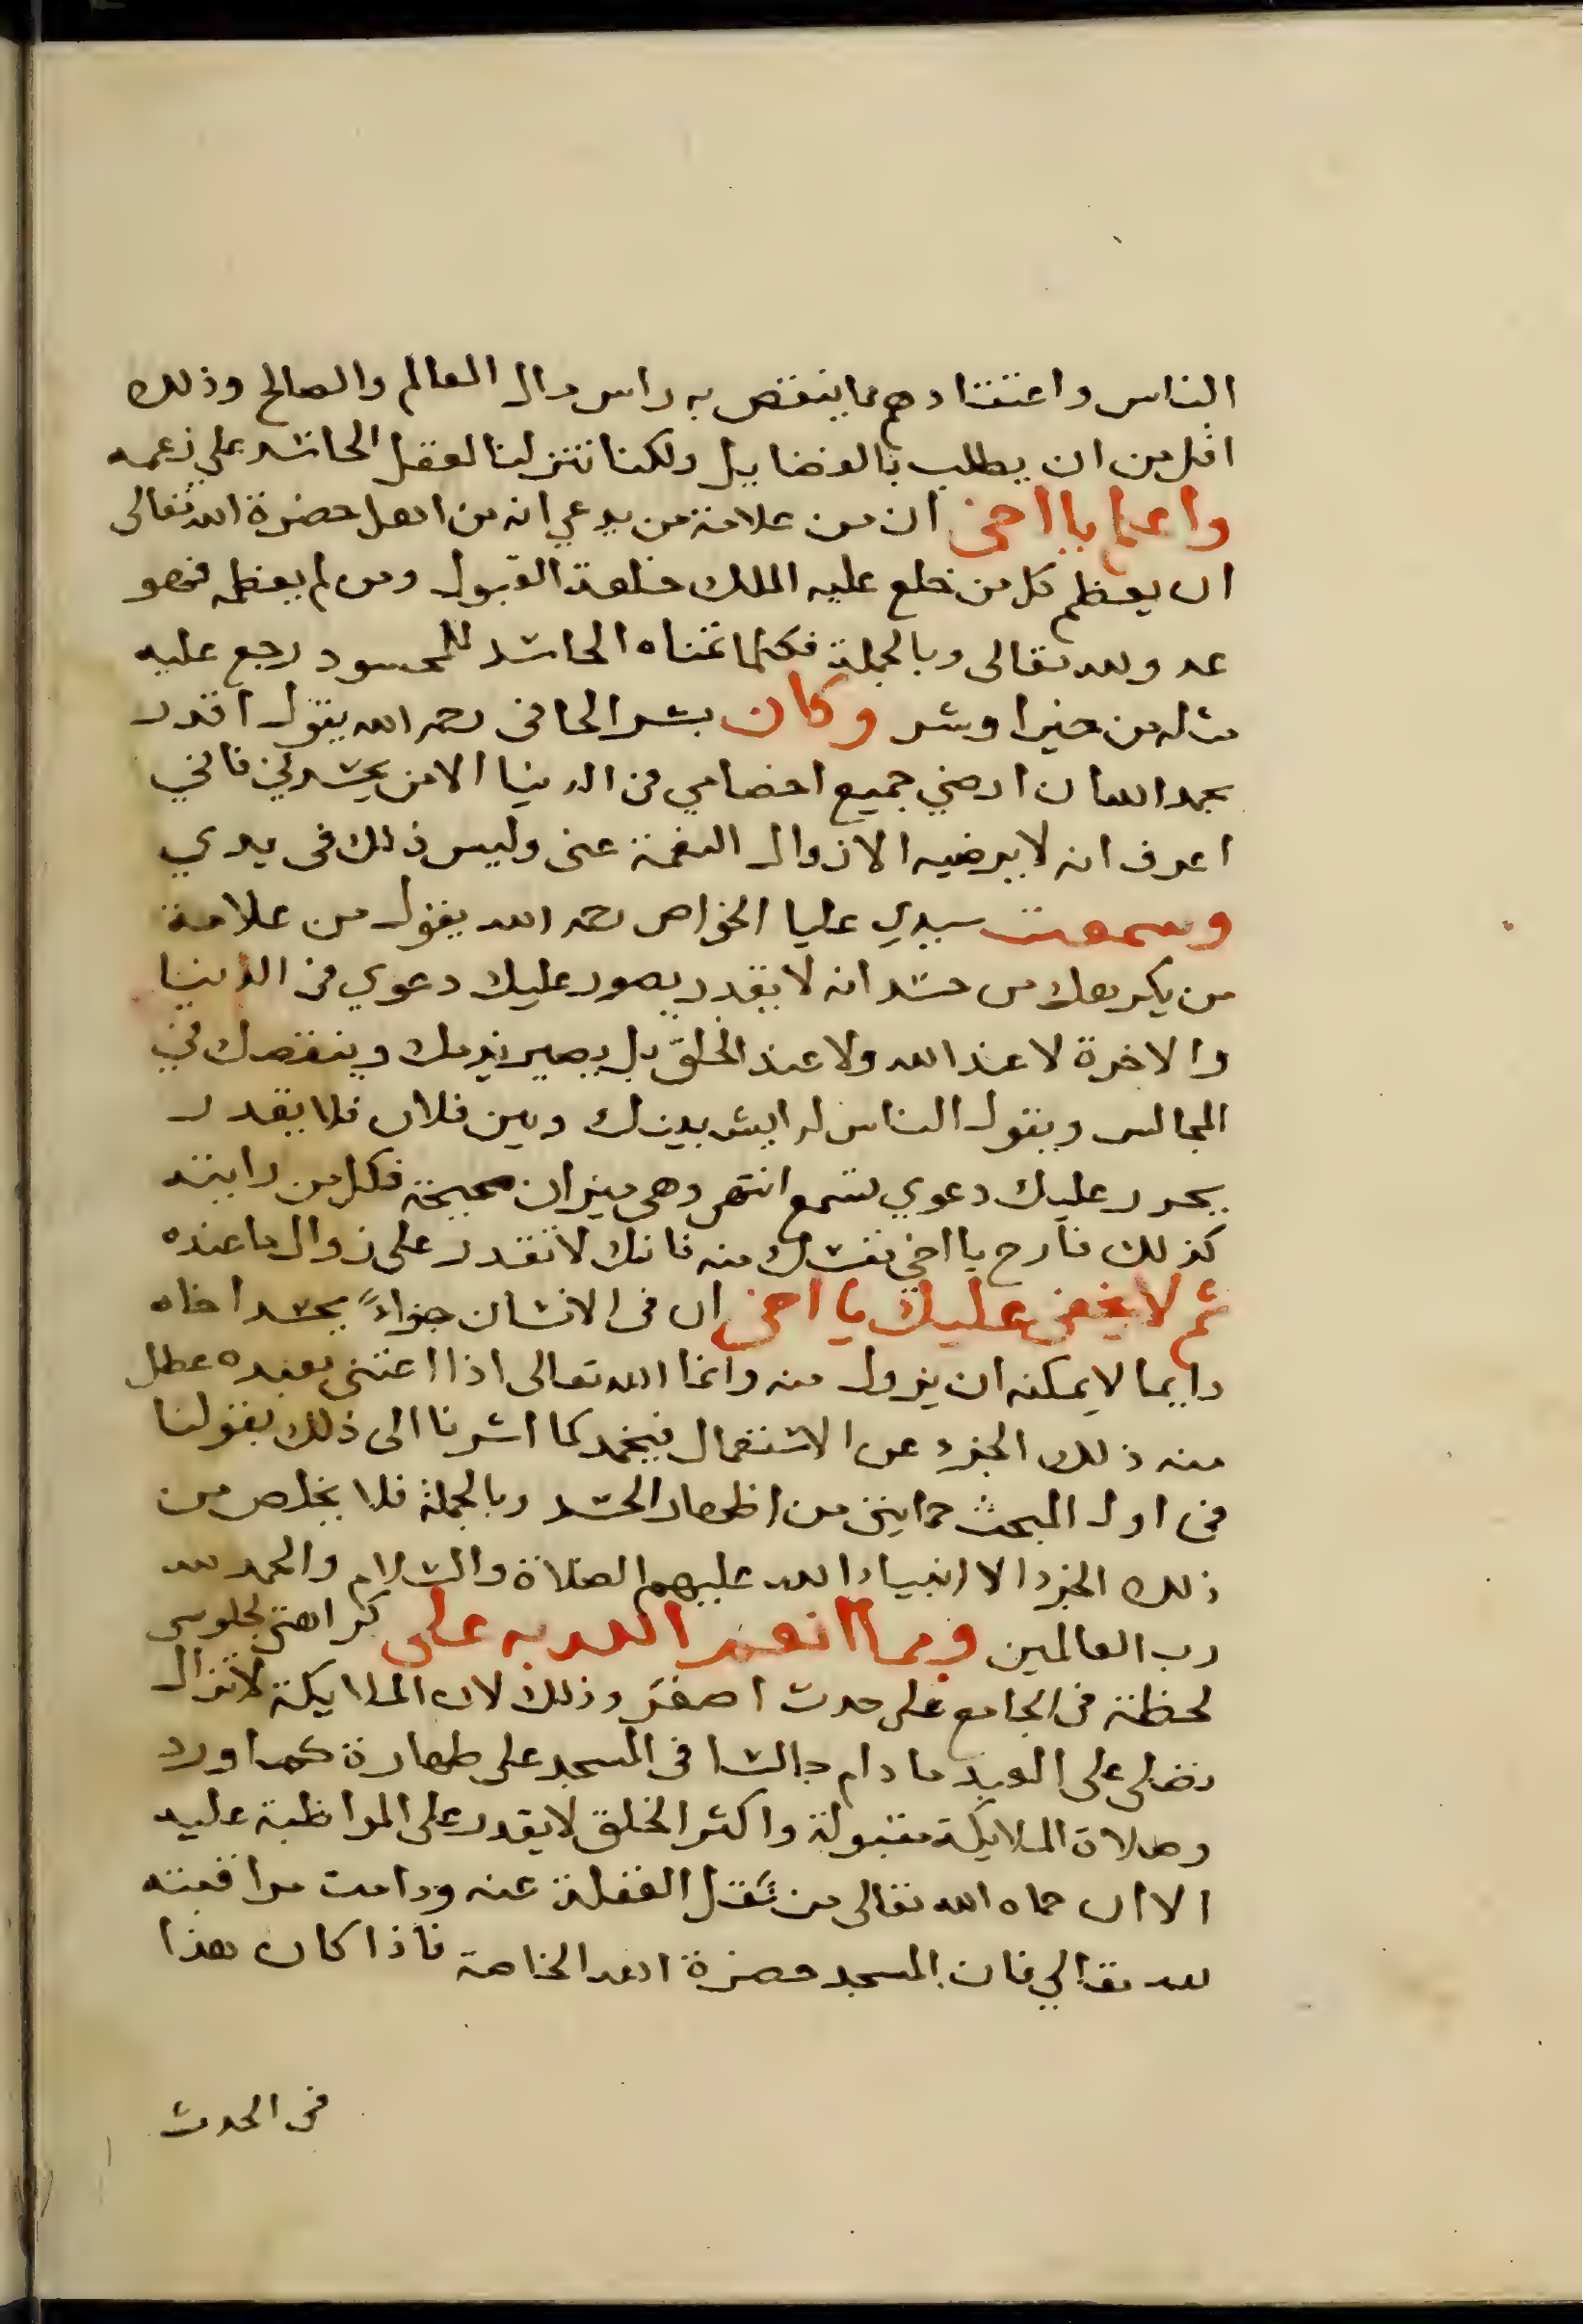 الناس واعتقادهم مما ينقص به راس مال العالم والصالح وذلك
اقل من ان يطلب بالفضايل ولكنا تنزلنا لعقل الحاسد على زعمه
واعلم يا اخى ان من علامة من يدعي انه من اهل حضرة الله تعالى
ان يعظم كل من خلع عليه الملك خلعة القبول ومن لم يعظمه فهو
عدو لله تعالى وبالجملة فكلما تمناه الحاسد للمحسود رجع عليه
مثله من خير او شر وكان بشر الحافى رحمه الله يقول اقدر
بحمد الله ان ارضي جميع اخصامي فى الدنيا الا من يحسدني فاني
اعرف انه لا يرضيه الا زوال النعمة عنى وليس ذلك فى يدي
وسمعت سيدي عليا الخواص رحمه الله يقول من علامة
من يكرهك من حسد انه لا يقدر يصور عليك دعوي فى الدنيا
والاخرة لا عند الله ولا عند الخلق بل يصير يذمك وينقصك في
المجالس ويقول الناس له ايش بينك وبين فلان فلا يقدر
يحرر عليك دعوي تسمع انتهى وهى ميزان صحيحة فكل من رايته
كذلك فارح يا اخي نفسك منه فانك لا تقدر على زوال ما عنده
ثم لا يخفى عليك يا اخى ان فى الانسان جزاءً يحسد اخاه
دايما لا يمكنه ان يزول منه وانما الله تعالى اذا اعتنى بعبده عطل
منه ذلك الجزء عن الاستعمال فيخمد كما اشرنا الى ذلك بقولنا
فى اول المبحث حمايتى من اظهار الحسد وبالجملة فلا يخلص من
ذلك الجزء الا انبياء الله عليهم الصلاة والسلام والحمد لله
رب العالمين ومما انعم الله به على كراهتى لجلوسى
لحظة فى الجامع على حدث اصغر وذلك لان الملايكة لا تزال
تصلى على العبد ما دام جالسا فى المسجد على طهارة كما ورد
وصلاة الملايكة مقبولة واكثر الخلق لا يقدر على المواظبة عليه
الا ان حماه الله تعالى من ثقل الغفلة عنه ودامت مراقبته
لله تعالي فان المسجد حضرة الله الخاصة فاذا كان هذا
فى الحدث